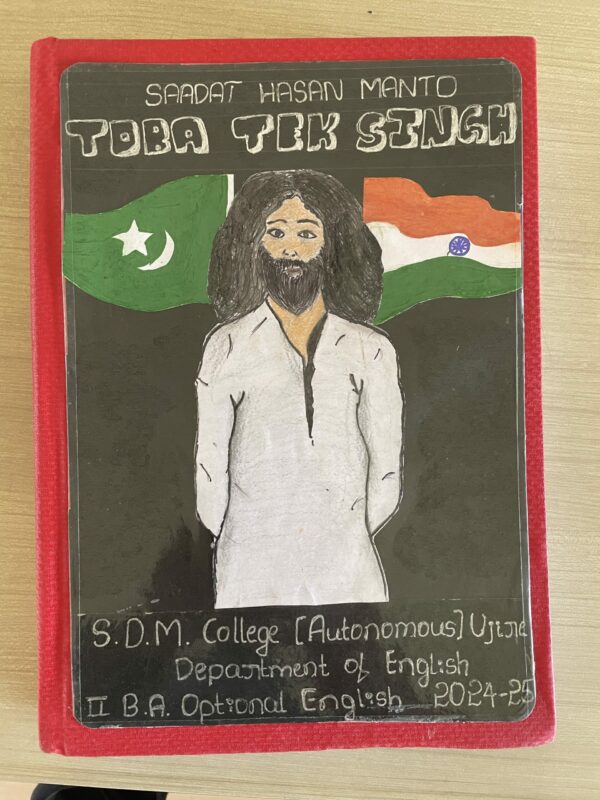 SAADAT HASAN MANTO
TOBA TEK SINGH
S.D.M. College [Autonomous] Ujire
Department of English
II B.A. Optional English 2024-25